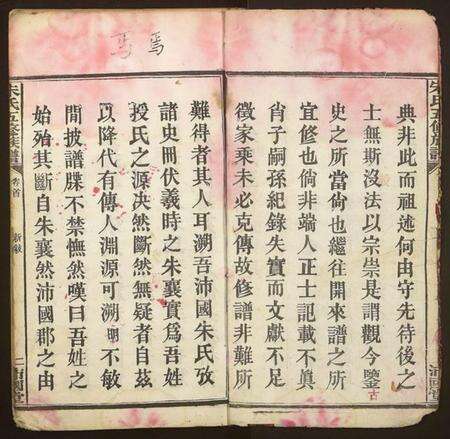 焉
焉
朱氏五修族譜
典非此而祖述何由守先待後之
士無斯沒法以宗崇是謂觀今鑒
古
史之所當尙也繼往開來譜之所
宜修也倘非端人正士記載不眞
肖子嗣孫紀錄失實而文獻不足
徵家乘未必克傳故修譜非難所
難得者其人耳溯吾沛國朱氏攷
諸史冊伏羲時之朱襄實爲吾姓
授氏之源決然斷然無疑者自茲
以降代有傳人淵源可溯明不敏
閒披譜牒不禁憮然嘆曰吾姓之
始殆其斷自朱襄然沛國郡之由
朱氏五修族譜
卷首
新敘
二
沛國堂